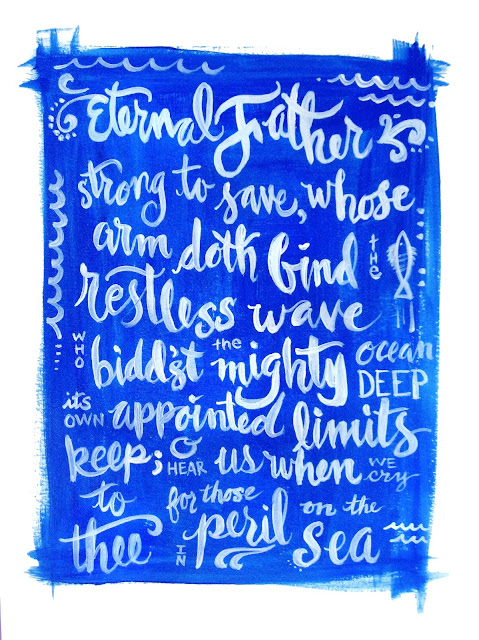 Eternal Father
strong to save, whose
arm doth bind the
restless wave
WHO bidd'st the mighty ocean DEEP
its OWN appointed limits
keep; O HEAR us when WE cry
to for those on the
thee IN peril sea